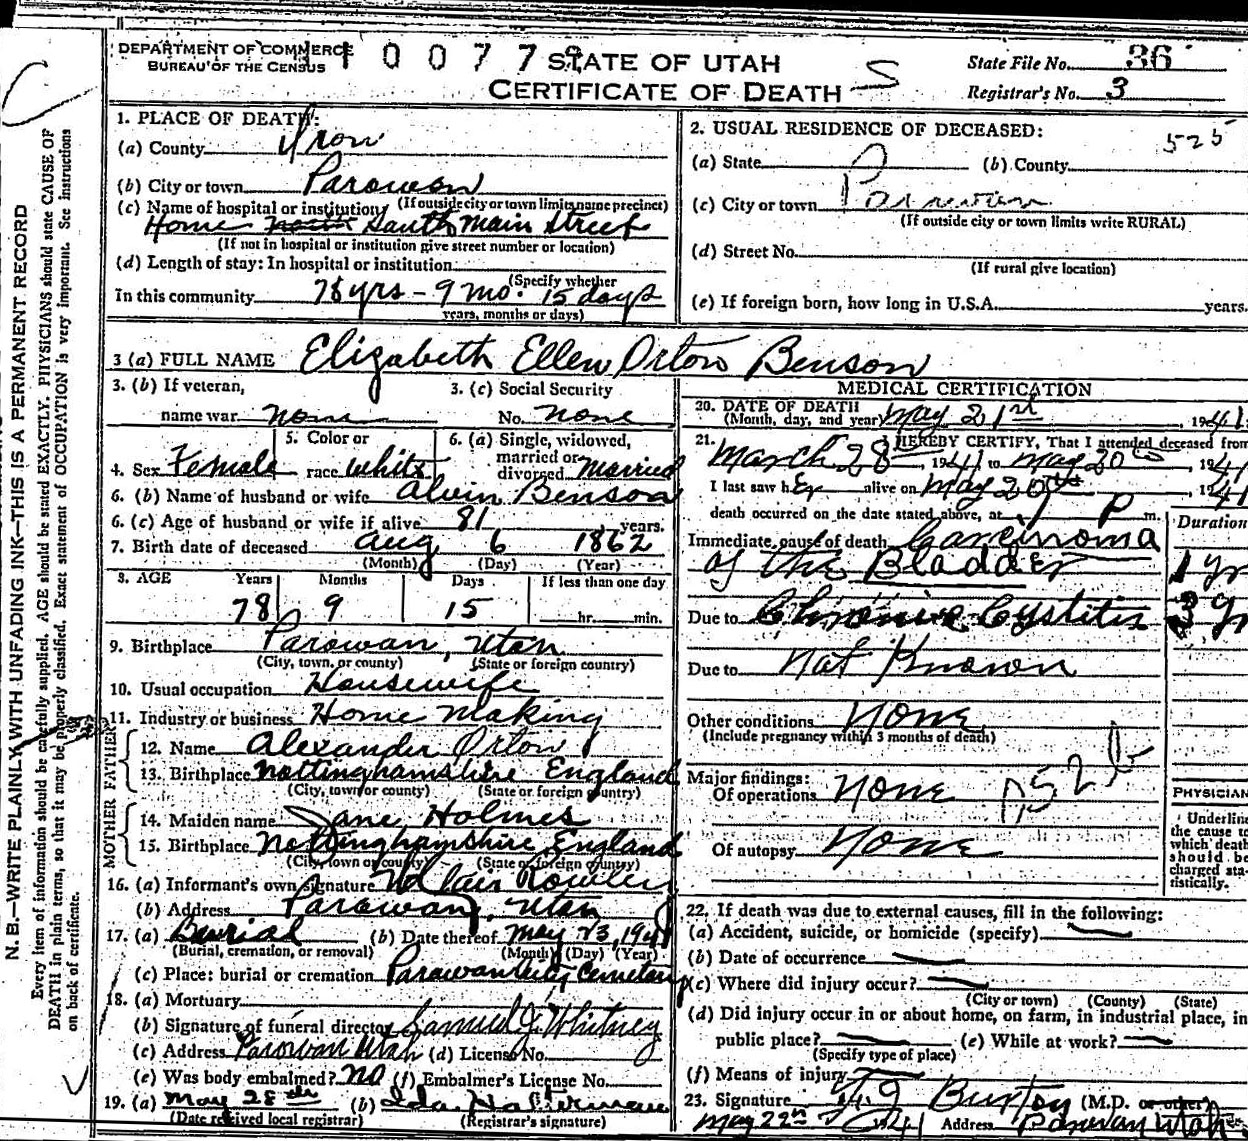 DEPARTMENT OF COMMERCE
BUREAU OF THE CENSUS
STATE OF UTAH
CERTIFICATE OF DEATH
State File No. 36
Registrar's No. 3
N. B.—WRITE PLAINLY WITH UNFADING INK—THIS IS A PERMANENT RECORD
Every item of information should be carefully supplied. AGE should be stated EXACTLY. PHYSICIANS should state CAUSE OF
DEATH in plain terms, so that it may be properly classified. Exact statement of OCCUPATION is very important. See instructions
on back of certificate.
1. PLACE OF DEATH:
(a) County Iron
(b) City or town Parowan
(If outside city or town limits name precinct)
(c) Name of hospital or institution
Home South Main Street
(If not in hospital or institution give street number or location)
(d) Length of stay: In hospital or institution
(Specify whether
In this community 78 yrs - 9 mo. 15 days
years, months or days)
2. USUAL RESIDENCE OF DECEASED:
525
(a) State (b) County
(c) City or town Parowan
(If outside city or town limits write RURAL)
(d) Street No.
(If rural give location)
(e) If foreign born, how long in U.S.A. years.
3 (a) FULL NAME Elizabeth Ellen Orton Benson
3. (b) If veteran,
name war none
3. (c) Social Security
No. none
4. Sex Female
5. Color or
race white
6. (a) Single, widowed,
married or
divorced Married
6. (b) Name of husband or wife Alvin Benson
6. (c) Age of husband or wife if alive 81 years.
7. Birth date of deceased Aug 6 1862
(Month) (Day) (Year)
8. AGE Years Months Days If less than one day
78 9 15 hr. min.
9. Birthplace Parowan, Utah
(City, town, or county) (State or foreign country)
10. Usual occupation Housewife
11. Industry or business Home Making
FATHER
12. Name Alexander Orton
13. Birthplace Nottinghamshire England
(City, town or county) (State or foreign country)
MOTHER
14. Maiden name Jane Holmes
15. Birthplace Nottinghamshire England
(City, town or county) (State or foreign country)
16. (a) Informant's own signature
(b) Address Parowan, Utah
17. (a) Burial (b) Date thereof May 23, 1941
(Burial, cremation, or removal) (Month) (Day) (Year)
(c) Place: burial or cremation Parowan City Cemetery
18. (a) Mortuary
(b) Signature of funeral director Samuel J. Whitney
(c) Address Parowan Utah (d) License No.
(e) Was body embalmed? NO (f) Embalmer's License No.
19. (a) May 28th (b) Ida
(Date received local registrar) (Registrar's signature)
MEDICAL CERTIFICATION
20. DATE OF DEATH
(Month, day, and year) May 21st, 1941.
21. I HEREBY CERTIFY, That I attended deceased from
March 28 1941 to May 20th, 194
I last saw her alive on May 20th, 1941
death occurred on the date stated above, at P m.
Duration
Immediate cause of death Carcinoma
of the Bladder 1 yr
Due to Chronic Cystitis 3 yr
Due to Not Known
Other conditions None
(Include pregnancy within 3 months of death)
Major findings:
Of operations None
Of autopsy None
PHYSICIAN
Underline
the cause to
which death
should be
charged sta-
tistically.
22. If death was due to external causes, fill in the following:
(a) Accident, suicide, or homicide (specify)
(b) Date of occurrence
(c) Where did injury occur?
(City or town) (County) (State)
(d) Did injury occur in or about home, on farm, in industrial place, in
public place? (e) While at work?
(Specify type of place)
(f) Means of injury
23. Signature Buxton (M.D. or other)
May 22nd 1941 Address Parowan Utah